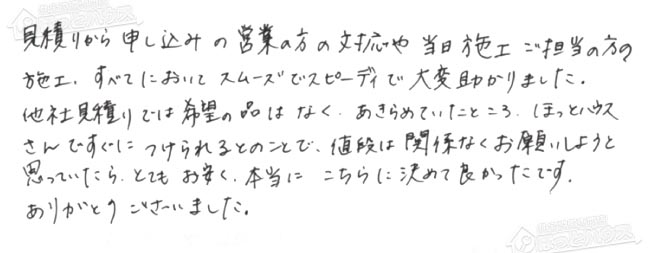 見積りから申し込みの営業の方の対応や当日施工ご担当の方の
施工、すべてにおいてスムーズでスピーディで大変助かりました。
他社見積りでは希望の品はなく、あきらめていたところ、ほっとハウス
さんですぐにつけられるとのことで、値段は関係なくお願いしようと
思っていたら、とてもお安く、本当にこちらに決めて良かったです。
ありがとうございました。